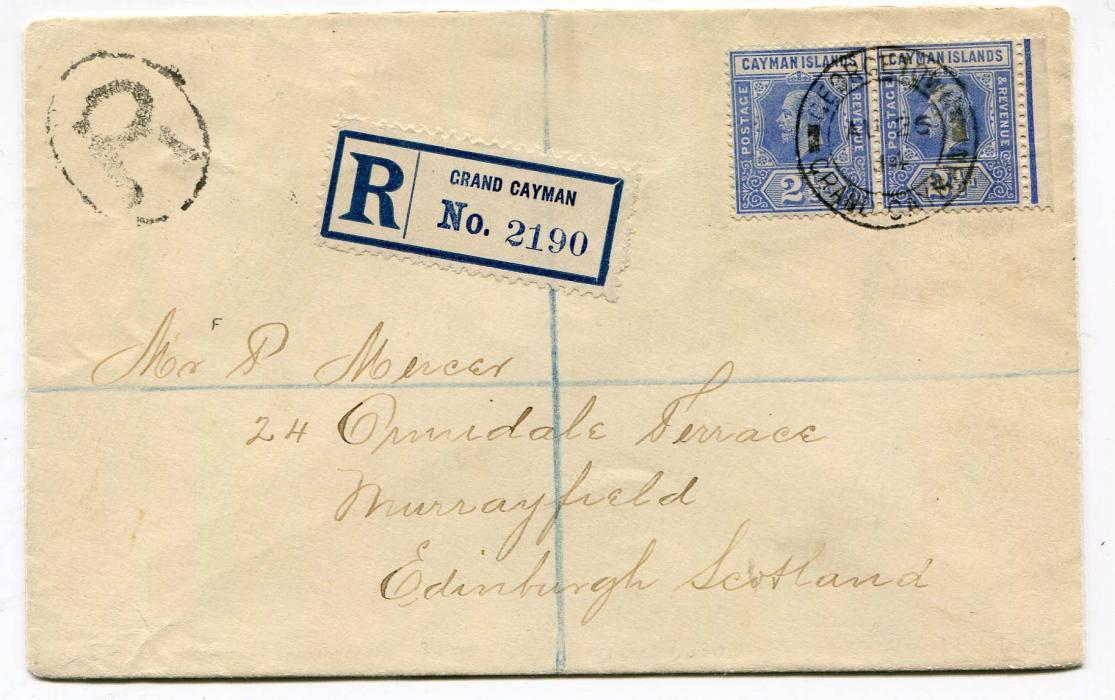 R
CAYMAN ISLANDS CAYMAN ISLANDS
POSTAGE & REVENUE POSTAGE & REVENUE
GEORGETOWN
GRAND CAYMAN
R GRAND CAYMAN
No. 2190
F
Mr P Mercer
24 Ormidale Terrace
Murrayfield
Edinburgh Scotland